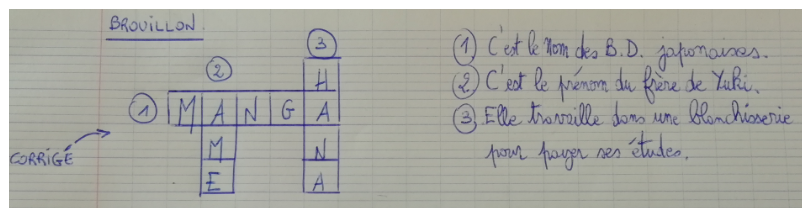 BROUILLON
③
②
H
① M A N G A
M N
E A
CORRIGÉ
① C'est le nom des B.D. japonaises.
② C'est le prénom du frère de Yuki.
③ Elle travaille dans une blanchisserie
pour payer ses études.